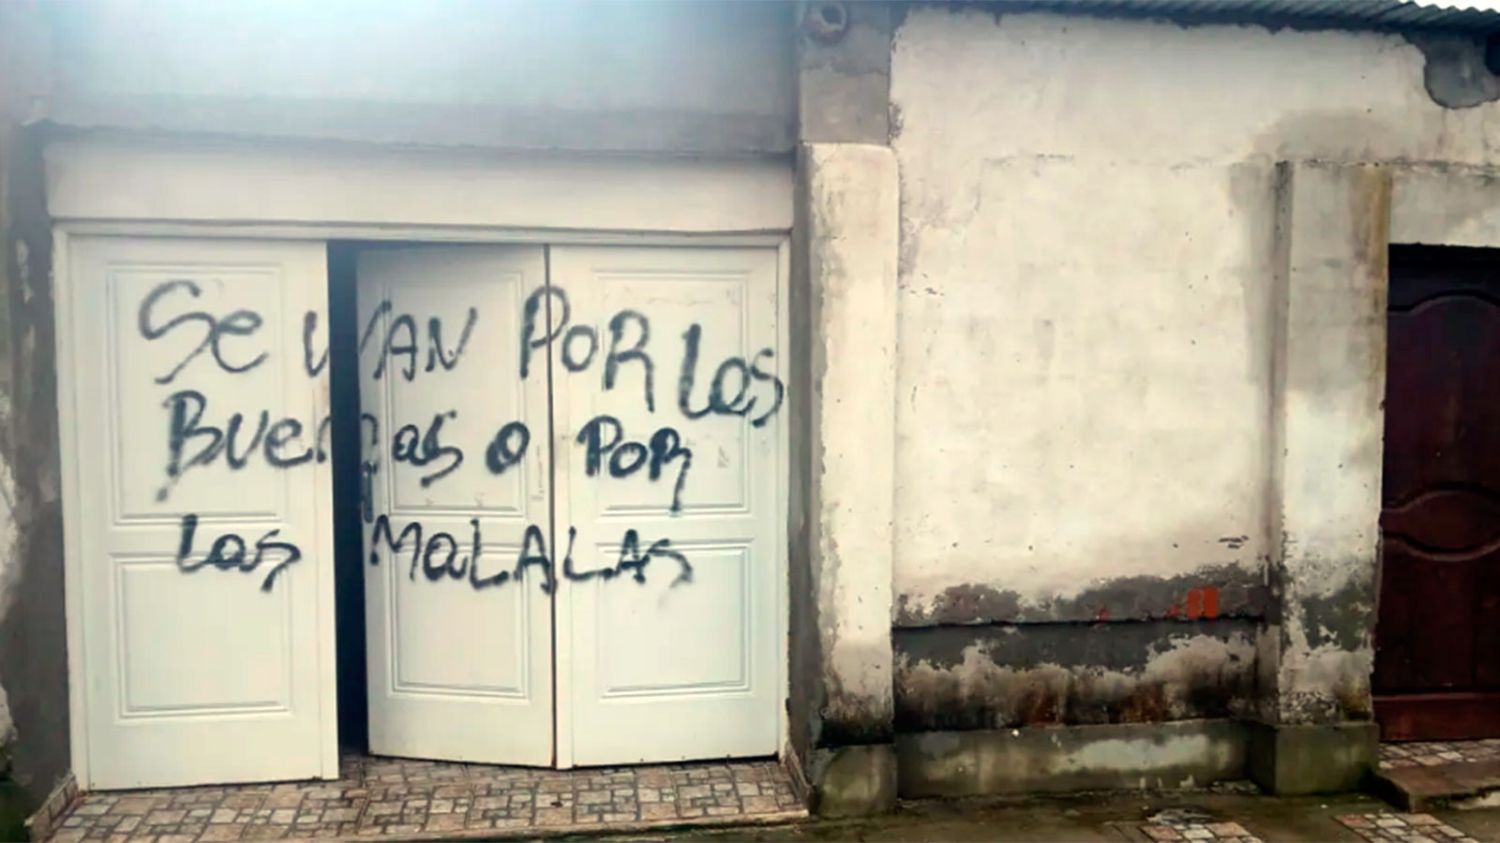 Se VAN POR Las
BUENas o POR
Las MaLALAS